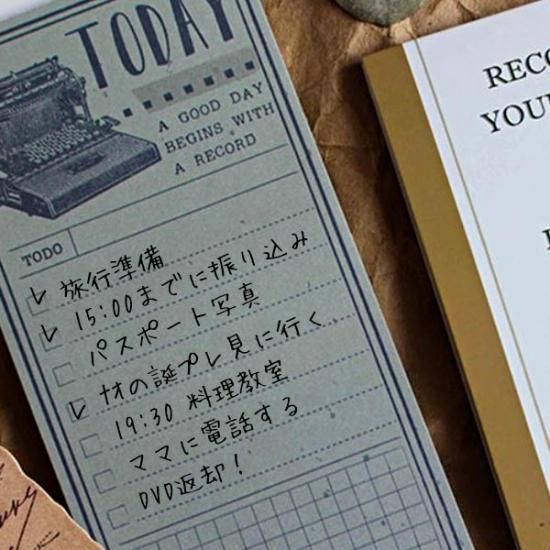 TODAY
A GOOD DAY
BEGINS WITH
A RECORD
TODO
旅行準備
15:00までに振り込み
パスポート写真
ナオの誕プレ見に行く
19:30 料理教室
ママに電話する
DVD返却！
RECO
YOU